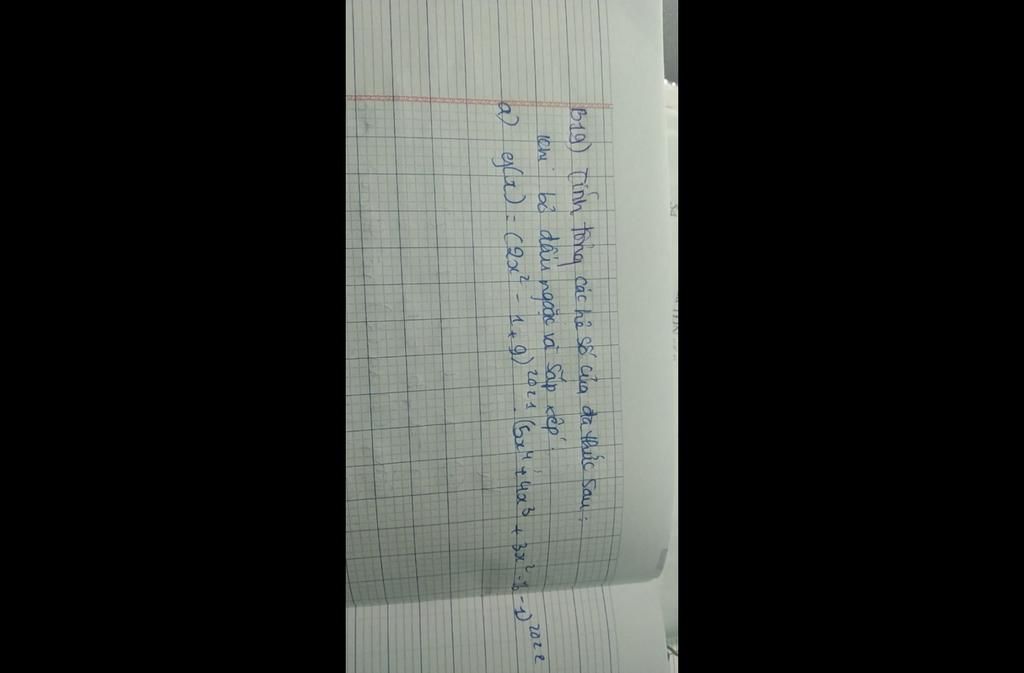 B19) Tính tổng các hệ số của đa thức sau:
khi bỏ dấu ngoặc và sắp xếp:
a) g(x) = (2x² - 1 + 9)²⁰²¹ . (5x⁴ + 4x³ + 3x² - 1)²⁰²²